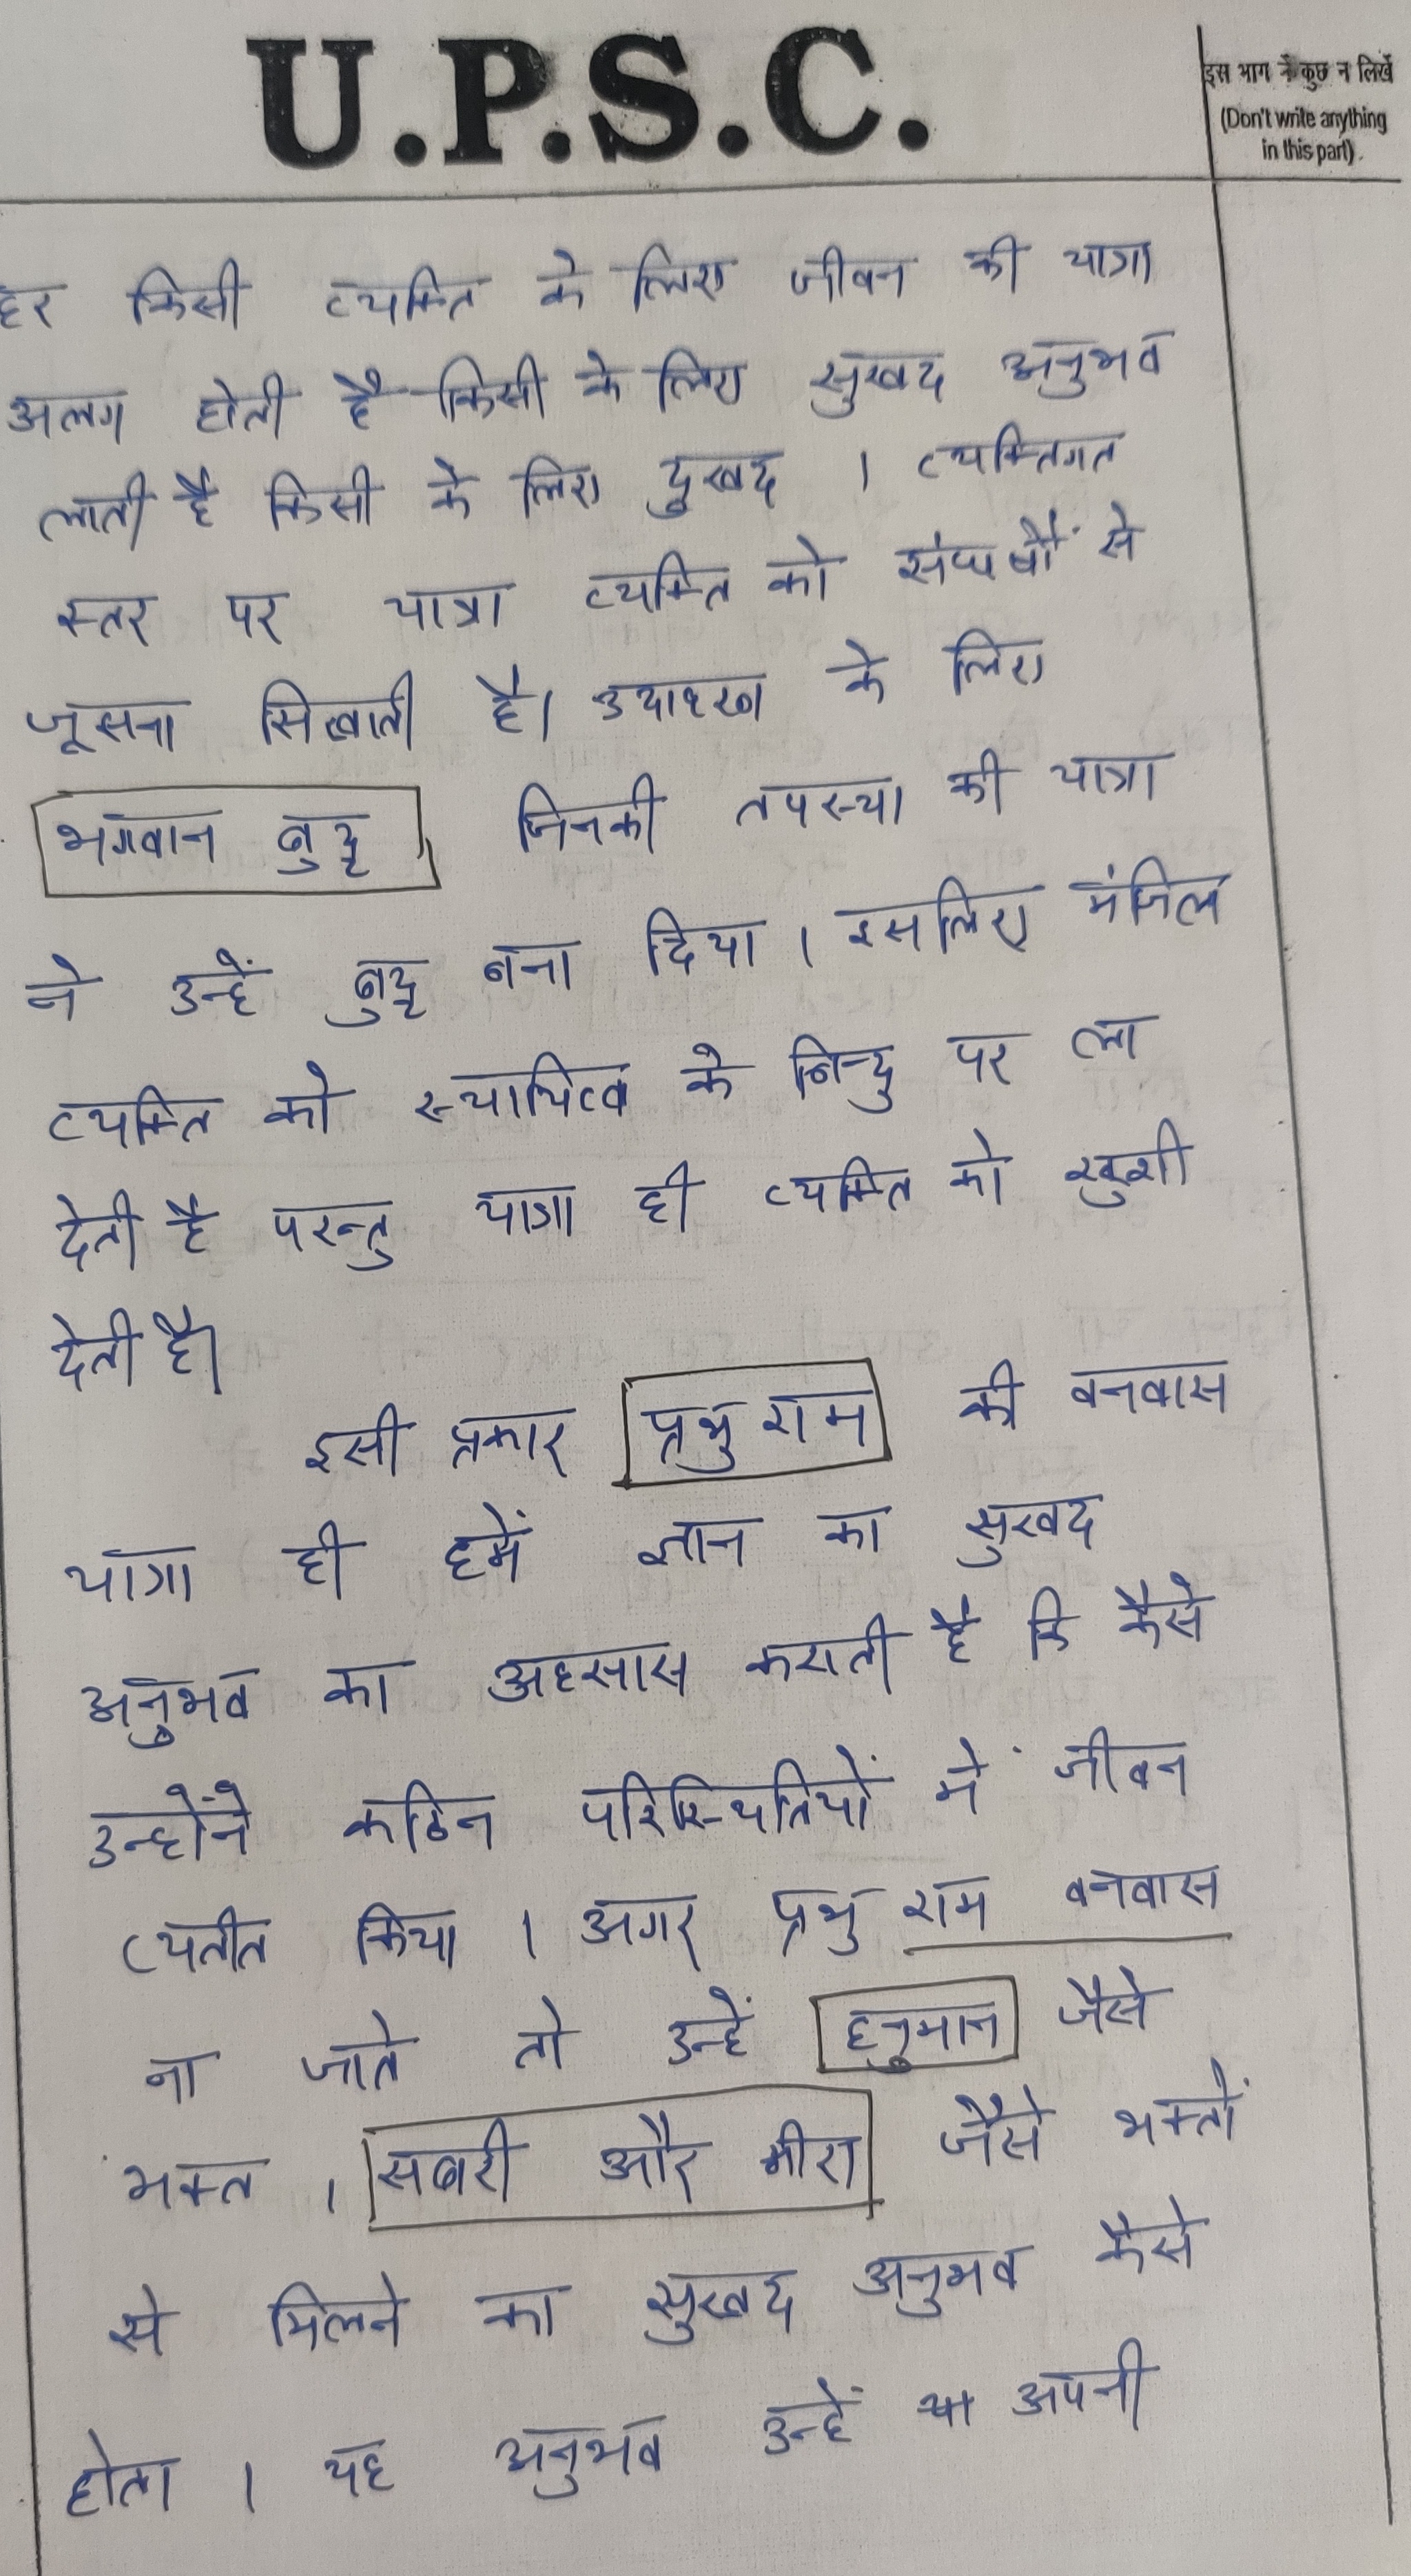 U.P.S.C.
इस भाग में कुछ न लिखें
(Don't write anything
in this part)
हर किसी व्यक्ति के लिए जीवन की यात्रा
अलग होती है किसी के लिए सुखद अनुभव
लाती है किसी के लिए दुखद । व्यक्तिगत
स्तर पर यात्रा व्यक्ति को संघर्षों से
जूझना सिखाती है। उदाहरण के लिए
भगवान बुद्ध, जिनकी तपस्या की यात्रा
ने उन्हें बुद्ध बना दिया । इसलिए मंजिल
व्यक्ति को स्थायित्व के बिन्दु पर ला
देती है परन्तु यात्रा ही व्यक्ति को खुशी
देती है।
इसी प्रकार प्रभु राम की वनवास
यात्रा ही हमें ज्ञान का सुखद
अनुभव का अहसास कराती है कि कैसे
उन्होंने कठिन परिस्थितियों में जीवन
व्यतीत किया । अगर प्रभु राम वनवास
ना जाते तो उन्हें हनुमान जैसे
भक्त , सबरी और मीरा जैसे भक्तों
से मिलने का सुखद अनुभव कैसे
होता । यह अनुभव उन्हें अपनी